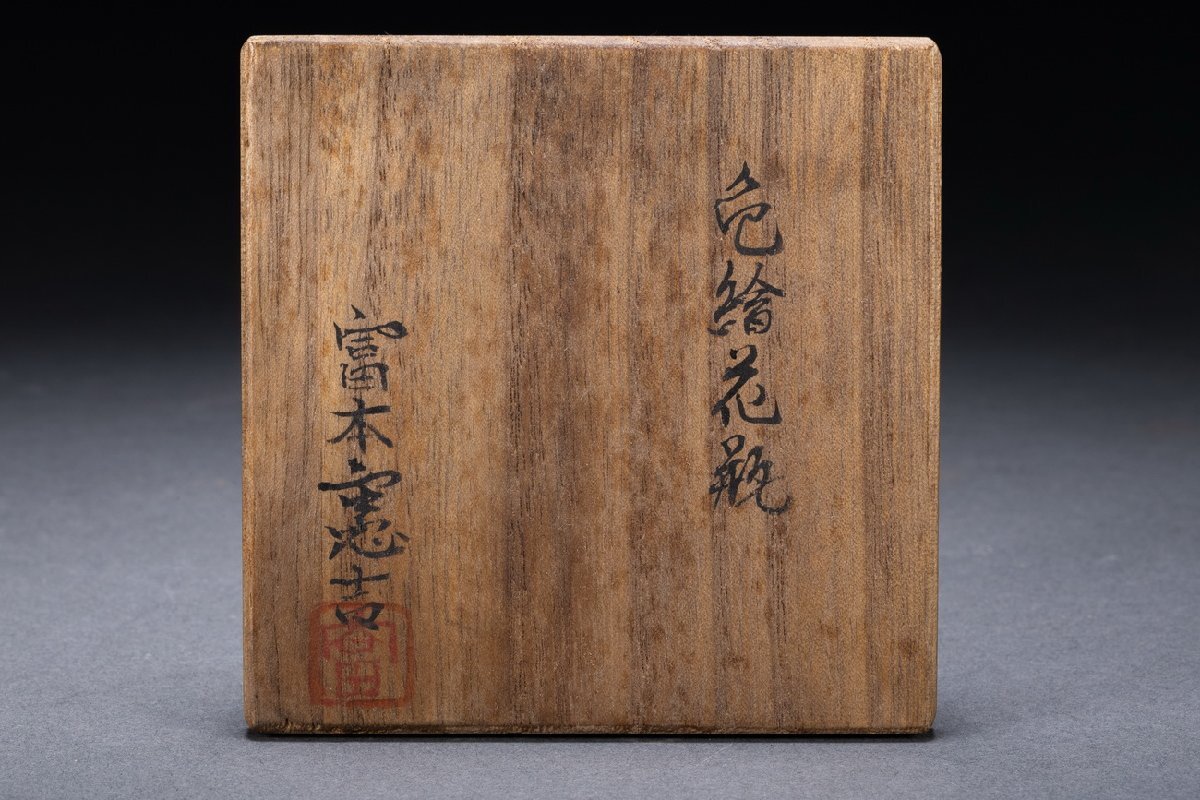 色繪花瓶
富本憲吉
富